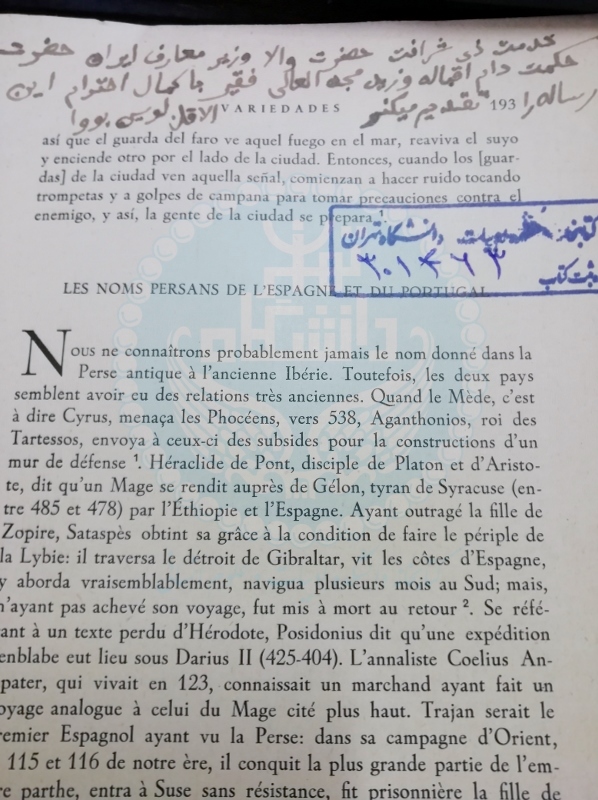 خدمت ذی شرافت حضرت والا وزیر معارف ایران حضرت
حکمت دام اقباله وزید مجده العالی فقیر با کمال احترام این
رساله را تقدیم میکنم الاقل لوسی بووا
VARIEDADES
193
así que el guarda del faro ve aquel fuego en el mar, reaviva el suyo
y enciende otro por el lado de la ciudad. Entonces, cuando los [guar-
das] de la ciudad ven aquella señal, comienzan a hacer ruido tocando
trompetas y a golpes de campana para tomar precauciones contra el
enemigo, y así, la gente de la ciudad se prepara ¹.
کتابخانه ادبیات دانشگاه تهران
۳۰۱۴۶۳
ثبت کتاب
LES NOMS PERSANS DE L'ESPAGNE ET DU PORTUGAL
Nous ne connaîtrons probablement jamais le nom donné dans la
Perse antique à l'ancienne Ibérie. Toutefois, les deux pays
semblent avoir eu des relations très anciennes. Quand le Mède, c'est
à dire Cyrus, menaça les Phocéens, vers 538, Aganthonios, roi des
Tartessos, envoya à ceux-ci des subsides pour la constructions d'un
mur de défense ¹. Héraclide de Pont, disciple de Platon et d'Aristo-
te, dit qu'un Mage se rendit auprès de Gélon, tyran de Syracuse (en-
tre 485 et 478) par l'Éthiopie et l'Espagne. Ayant outragé la fille de
Zopire, Sataspès obtint sa grâce à la condition de faire le périple de
la Lybie: il traversa le détroit de Gibraltar, vit les côtes d'Espagne,
y aborda vraisemblablement, navigua plusieurs mois au Sud; mais,
n'ayant pas achevé son voyage, fut mis à mort au retour ². Se réfé-
rant à un texte perdu d'Hérodote, Posidonius dit qu'une expédition
enblabe eut lieu sous Darius II (425-404). L'annaliste Coelius An-
pater, qui vivait en 123, connaissait un marchand ayant fait un
oyage analogue à celui du Mage cité plus haut. Trajan serait le
remier Espagnol ayant vu la Perse: dans sa campagne d'Orient,
115 et 116 de notre ère, il conquit la plus grande partie de l'em-
re parthe, entra à Suse sans résistance, fit prisonnière la fille de